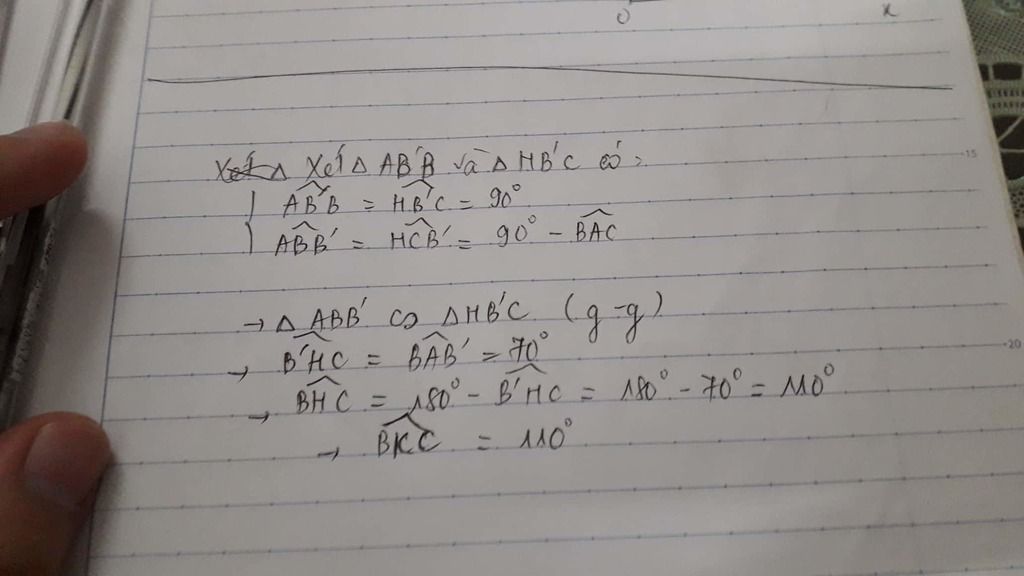 0 x
Xét Δ Xét Δ AB'B và Δ HB'C có:
15
AB'B = HB'C = 90°
ABB' = HCB' = 90° - BAC
→ Δ ABB' ∽ Δ HB'C (g-g)
→ B'HC = BAB' = 70°
20
→ BHC = 180° - B'HC = 180° - 70° = 110°
→ BKC = 110°